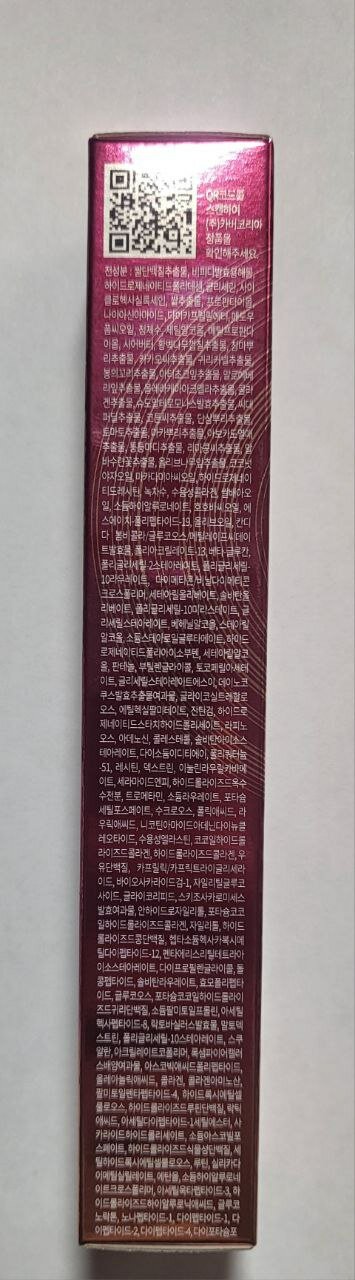 QR코드를
스캔하여
(주)카버코리아
정품을
확인해주세요.
전성분 : 쌀단백질추출물, 비피다발효용해물,
하이드로제네이티드폴리데센, 글리세린, 사이
클로헥사실록세인, 쌀추출물, 프로판다이올,
나이아신아마이드, 다이카프릴릴에터, 메도우
폼씨오일, 정제수, 세틸알코올, 메틸프로판다
이올, 시어버터, 황벽나무껍질추출물, 참마뿌
리추출물, 카카오씨추출물, 귀리커널추출물,
콩추출물,
토마토추출물, 마카뿌리추출물, 아보카도열매
추출물,
바수련꽃추출물, 올리브나무잎추출물, 코코넛
야자오일, 마카다미아씨오일, 하이드로제네이
티드레시틴, 녹차수, 수용성콜라겐, 쌀배아오
일, 소듐하이알루로네이트, 호호바씨오일, 에
스에이치-폴리펩타이드-19, 올리브오일, 칸디
다 봄비콜라/글루코오스/메틸레이프씨데이
트발효물, 폴리아크릴레이트-13, 베타-글루칸,
폴리글리세릴-2스테아레이트, 폴리글리세릴-
10라우레이트, 다이메티콘/비닐다이메티콘
크로스폴리머, 세테아릴올리베이트, 솔비탄올
리베이트, 폴리글리세릴-10미리스테이트, 글
리세릴스테아레이트, 베헤닐알코올, 스테아릴
알코올, 소듐스테아로일글루타메이트, 하이드
로제네이티드폴리아이소부텐, 세테아릴알코
올, 판테놀, 부틸렌글라이콜, 토코페릴아세테
이트, 글리세릴스테아레이트에스이, 데이노코
쿠스발효추출물여과물, 글라이코실트레할로
오스, 에틸헥실팔미테이트, 잔탄검, 하이드로
제네이티드스타치하이드롤리세이트, 라피노
오스, 아데노신, 콜레스테롤, 솔비탄아이소스
테아레이트, 다이소듐이디티에이, 폴리쿼터늄
-51, 레시틴, 덱스트린, 이눌린라우릴카바메
이트, 세라마이드엔피, 하이드롤라이즈드옥수
수전분, 트로메타민, 소듐라우레이트, 포타슘
세틸포스페이트, 수크로오스, 폴릭애씨드, 라
우릭애씨드, 니코틴아마이드아데닌다이뉴클
레오타이드, 수용성엘라스틴, 코코일하이드롤
라이즈드콜라겐, 하이드롤라이즈드콜라겐, 우
유단백질, 카프릴릭/카프릭트라이글리세라
이드, 바이오사카라이드검-1, 자일리틸글루코
사이드, 글라이코리피드, 스키조사카로미세스
발효여과물, 안하이드로자일리톨, 포타슘코코
일하이드롤라이즈드콜라겐, 자일리톨, 하이드
롤라이즈드콩단백질, 헵타소듐헥사카복시메
틸다이펩타이드-12, 펜타에리스리틸테트라아
이소스테아레이트, 다이프로필렌글라이콜, 돌
콩펩타이드, 솔비탄라우레이트, 효모폴리펩타
이드, 글루코오스, 포타슘코코일하이드롤라이
즈드귀리단백질, 소듐팔미토일프롤린, 아세틸
헥사펩타이드-8, 락토바실러스발효물, 말토덱
스트린, 폴리글리세릴-10스테아레이트, 스쿠
알란, 아크릴레이트코폴리머, 록샘파이어캘러
스배양여과물, 아스코빅애씨드폴리펩타이드,
올레아놀릭애씨드, 콜라겐, 콜라겐아미노산,
팔미토일펜타펩타이드-4, 하이드록시에틸셀
룰로오스, 하이드롤라이즈드루핀단백질, 락틱
애씨드, 아세틸다이펩타이드-1세틸에스터, 사
카라이드하이드롤리세이트, 소듐아스코빌포
스페이트, 하이드롤라이즈드식물성단백질, 세
틸하이드록시에틸셀룰로오스, 루틴, 실리카다
이메틸실릴레이트, 에탄올, 소듐하이알루로네
이트크로스폴리머, 아세틸옥타펩타이드-3, 하
이드롤라이즈드하이알루로닉애씨드, 글루코
노락톤, 노나펩타이드-1, 다이펩타이드-1, 다
이펩타이드-2, 다이펩타이드-4, 다이포타슘포